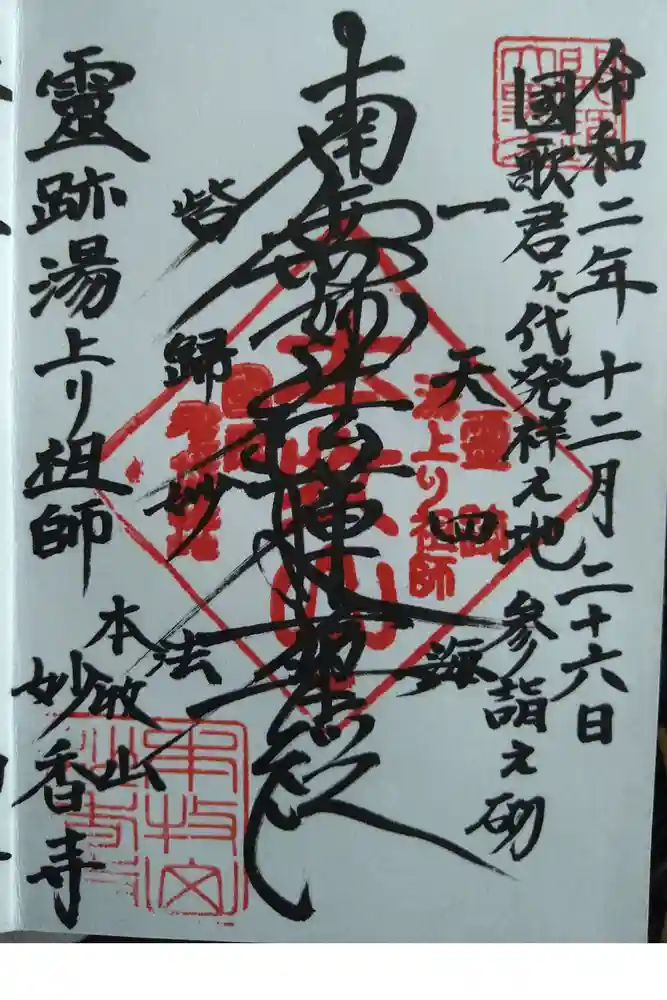 令和二年十二月二十六日
国歌君ヶ代発祥之地参詣之砌
一天四海
南無妙法蓮華経
皆歸妙法
靈跡湯上り祖師
本牧山
妙香寺
靈跡
湯上り祖師
本牧山